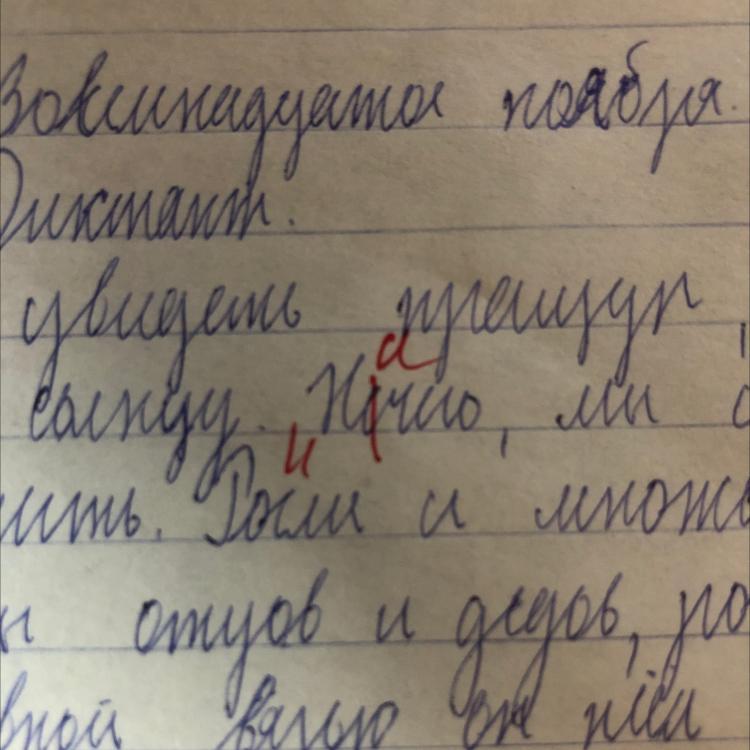 Восемнадцатое ноября.
Диктант.
увидеть пращур,
солнцу. Ночью, ми
а
ить. Росли и множе
и
отцов и дедов, ро
вной вязью он плёл